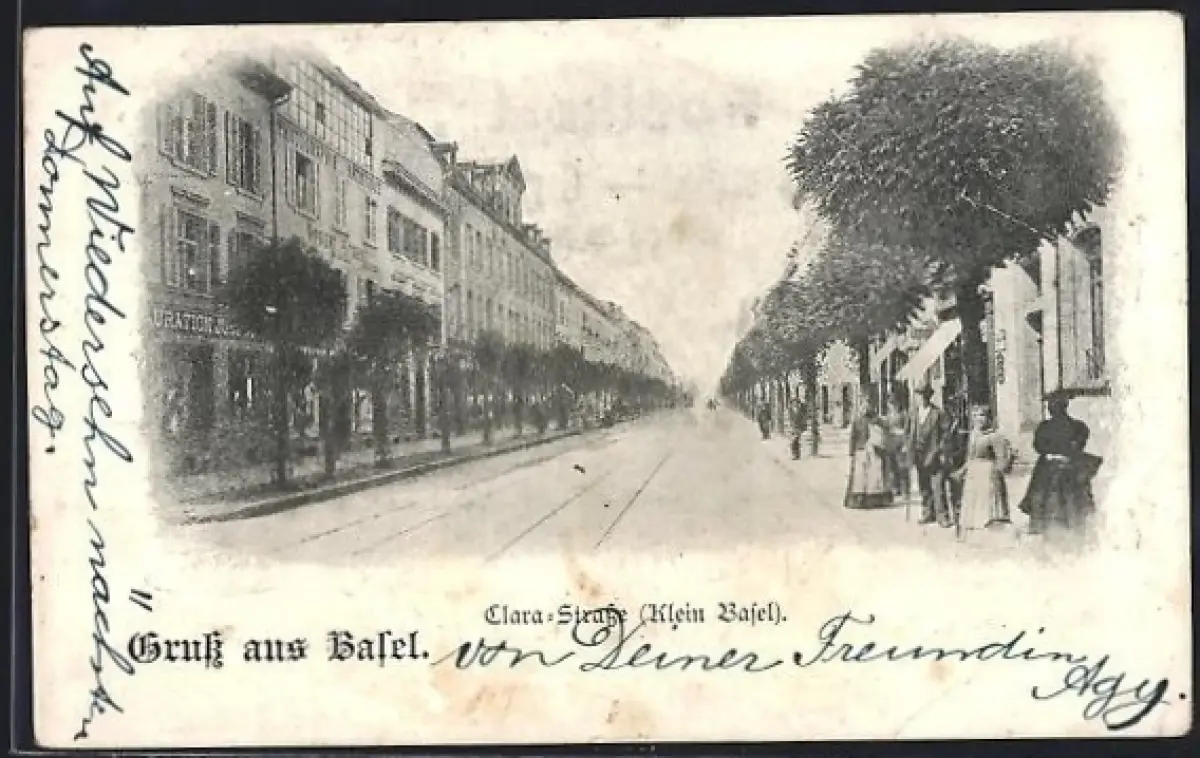 Auf Wiedersehn nächsten
Donnerstag.
URATION
Clara-Straße (Klein Basel).
"
Gruß aus Basel. von Deiner Freundin
Agy.